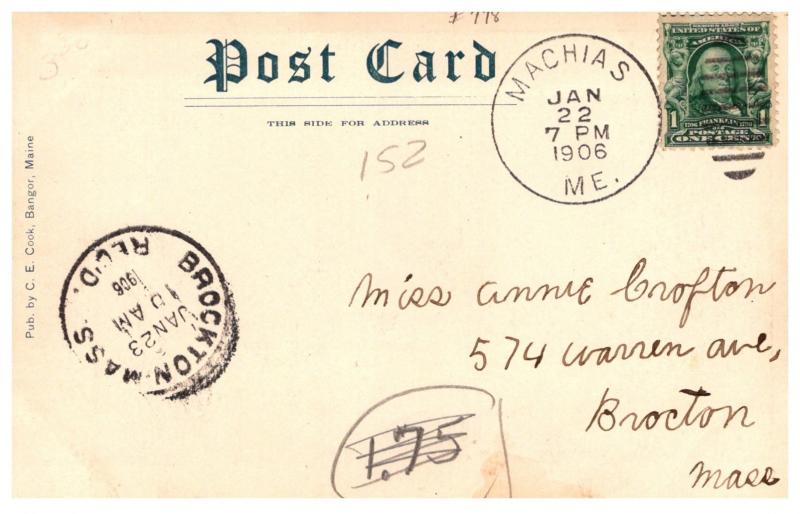 # 778
Post Card
THIS SIDE FOR ADDRESS
Pub. by C. E. Cook, Bangor, Maine
MACHIAS
JAN
22
7 PM
1906
ME.
UNITED STATES OF
AMERICA
1 FRANKLIN 1
POSTAGE
ONE CENT
152
BROCKTON, MASS.
REC'D.
1906
10 AM
JAN 23
Miss Annie Crofton
574 Warren Ave,
Brocton
Mass
1.75